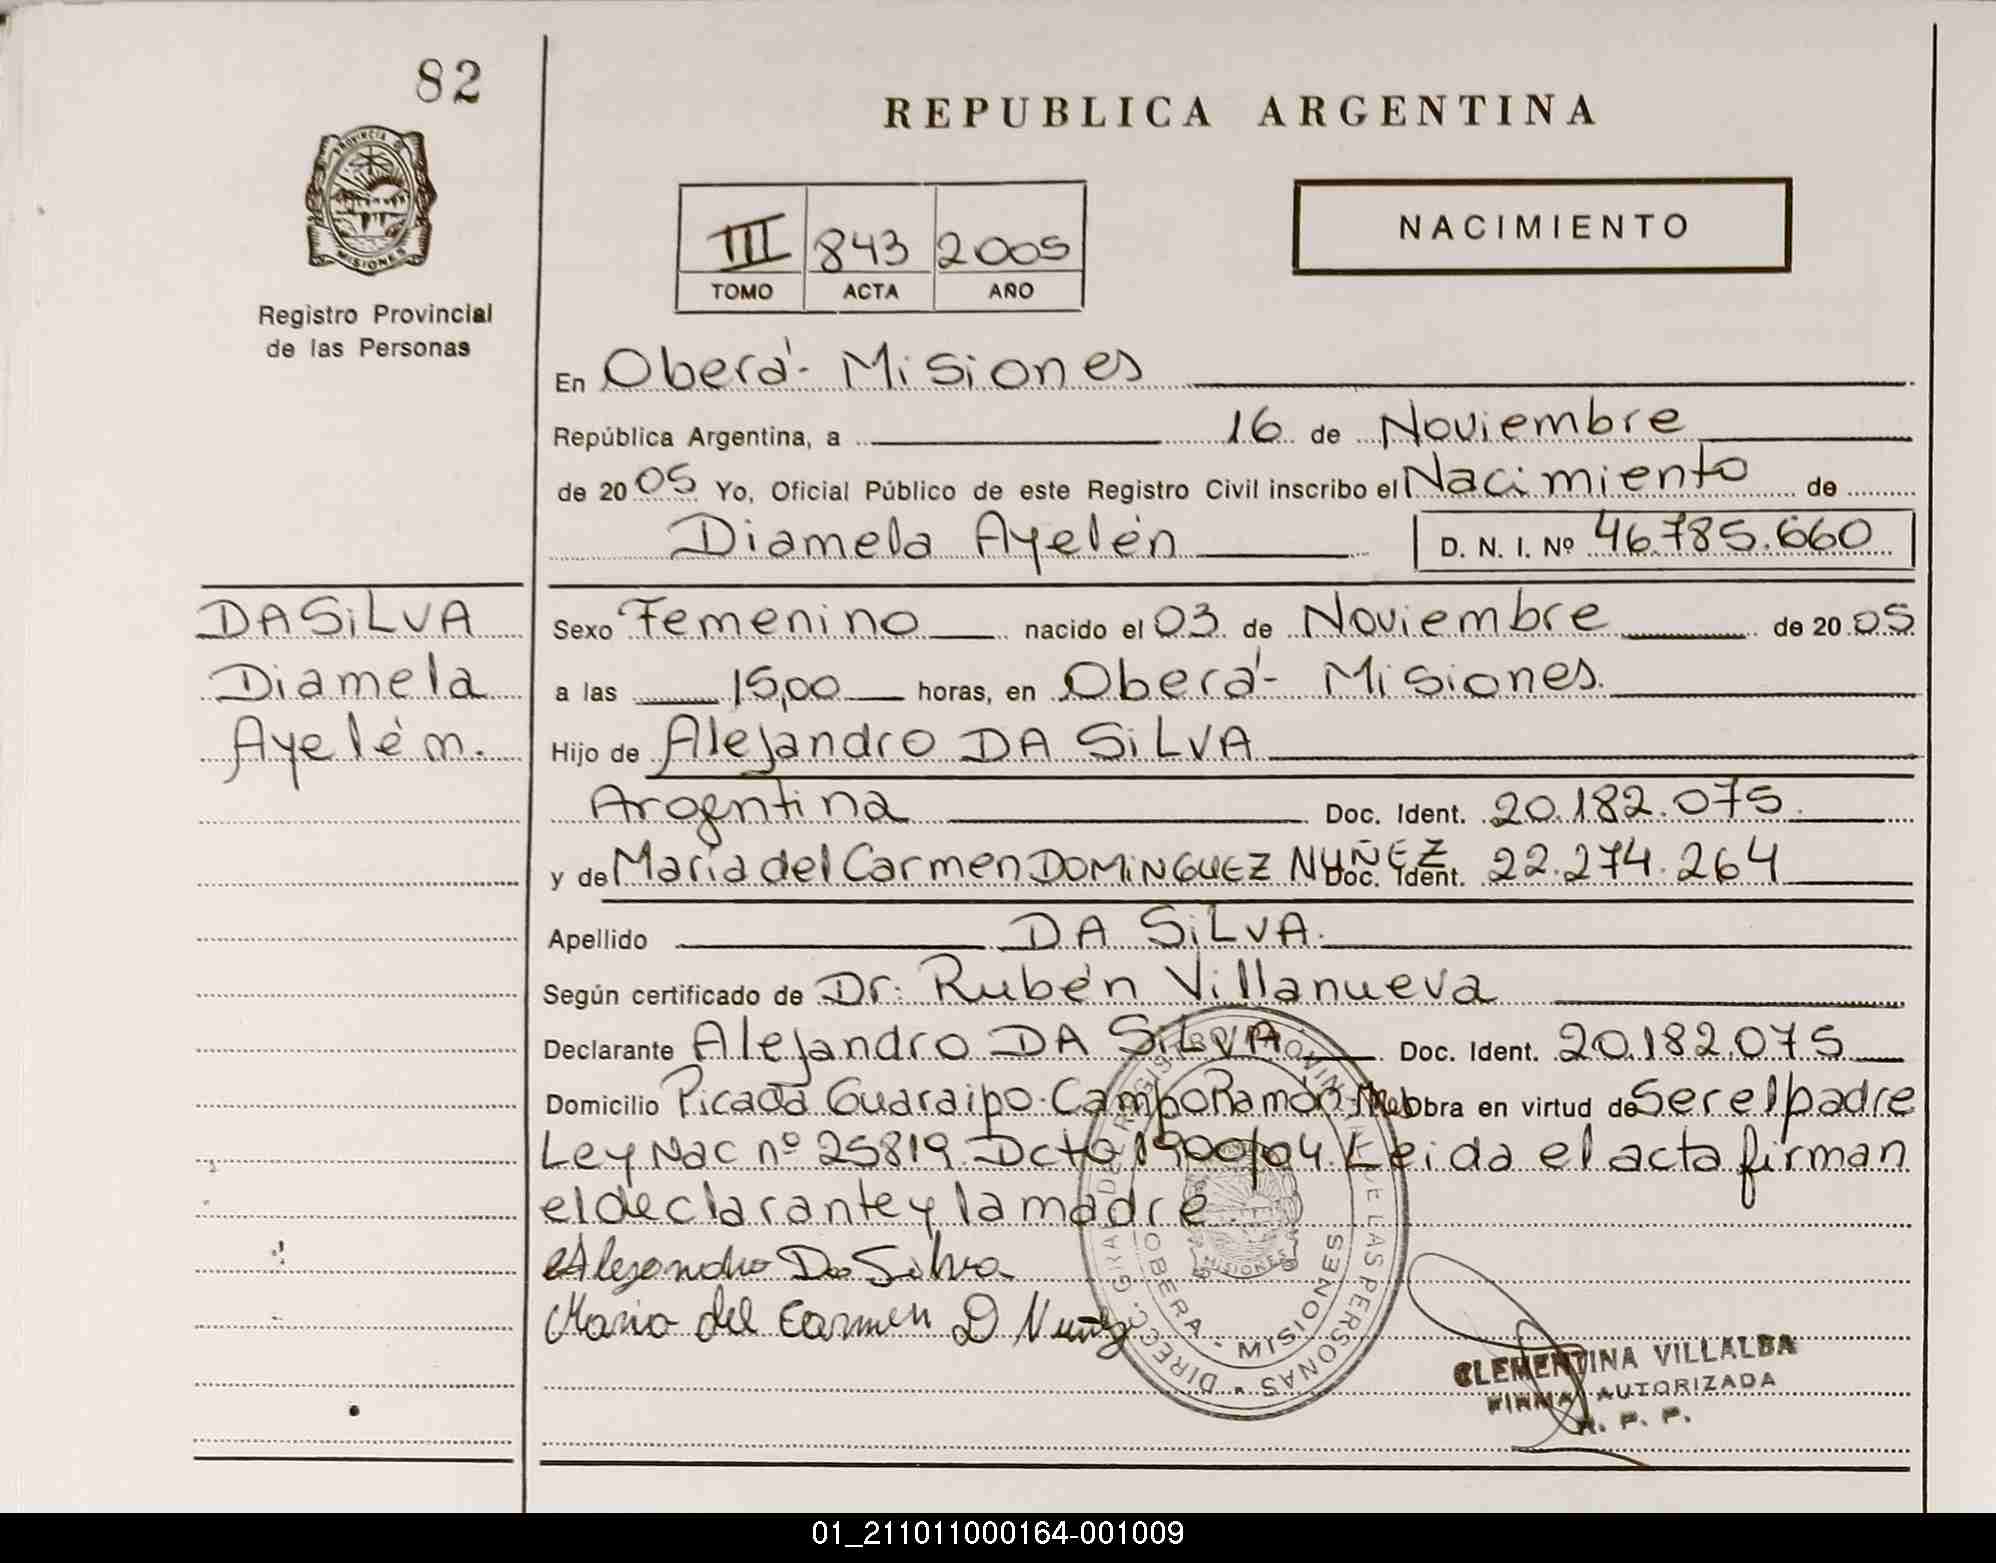 82
REPUBLICA ARGENTINA
PROVINCIA DE
MISIONES
Registro Provincial
de las Personas
III 843 2005
TOMO ACTA AÑO
NACIMIENTO
En Oberá - Misiones
República Argentina, a 16 de Noviembre
de 2005 Yo, Oficial Público de este Registro Civil inscribo el Nacimiento de
Diamela Ayelén D. N. I. Nº 46.785.660
DA SiLVA
Diamela
Ayelén.
Sexo Femenino nacido el 03 de Noviembre de 2005
a las 15,00 horas, en Oberá - Misiones.
Hijo de Alejandro DA SiLVA
Argentina Doc. Ident. 20.182.075.
y de María del Carmen DOMiNGUEZ NUÑEZ Doc. Ident. 22.274.264
Apellido DA SiLVA.
Según certificado de Dr. Rubén Villanueva
Declarante Alejandro DA SiLVA Doc. Ident. 20.182.075
Domicilio Picada Guaraipo. Campo Ramón Mnes Obra en virtud de Ser el padre
Ley Nac nº 25819 Dcto 1900/04. Leida el acta firman
el declarante y la madre.
Alejandro Da Silva
Maria del Carmen D Nuñez
DIRECC. GRAL. DEL REGISTRO PROVINCIAL DE LAS PERSONAS
OBERA - MISIONES
MISIONES
CLEMENTINA VILLALBA
FIRMA AUTORIZADA
R. P. P.
01_211011000164-001009